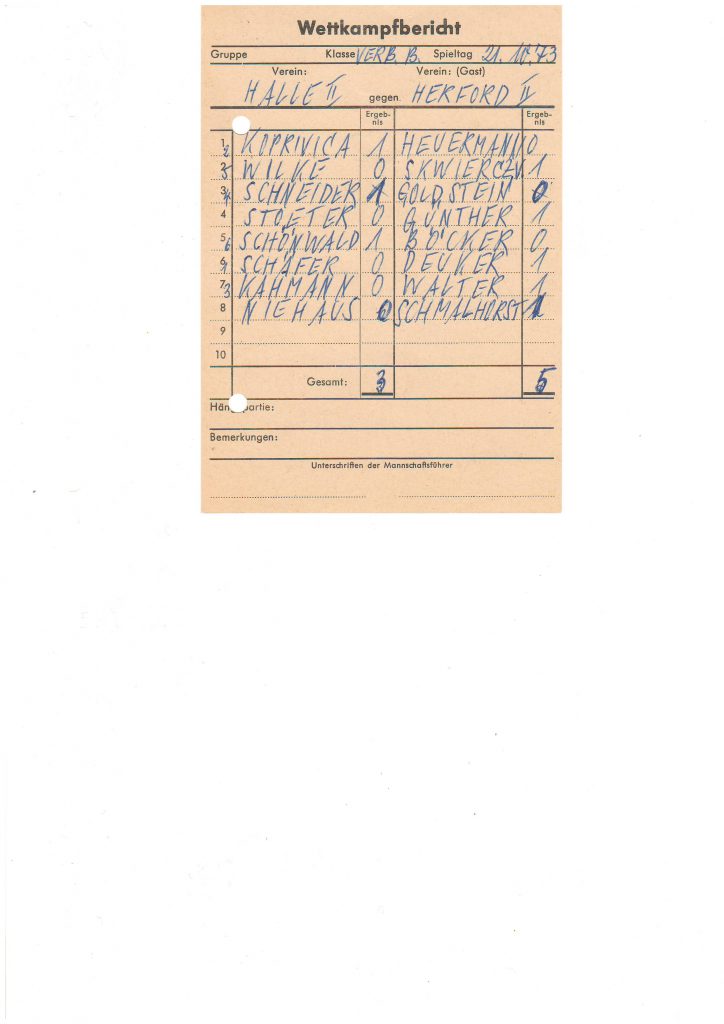 Wettkampfbericht
Gruppe Klasse VERB. B. Spieltag 21. 10. 73
Verein: Verein: (Gast)
HALLE II gegen HERFORD II
Ergeb-nis Ergeb-nis
1 KOPRIVICA 1 HEUERMANN 0
2 WILKE 0 SKWIERCZY. 1
3 SCHNEIDER 1 GOLDSTEIN 0
4 STOETER 0 GÜNTHER 1
5 SCHÖNWALD 1 BÖCKER 0
6 SCHÄFER 0 DEUKER 1
7 KAHMANN 0 WALTER 1
8 NIEHAUS 0 SCHMALHORST 1
9
10
Gesamt: 3 5
Hängepartie:
Bemerkungen:
Unterschriften der Mannschaftsführer